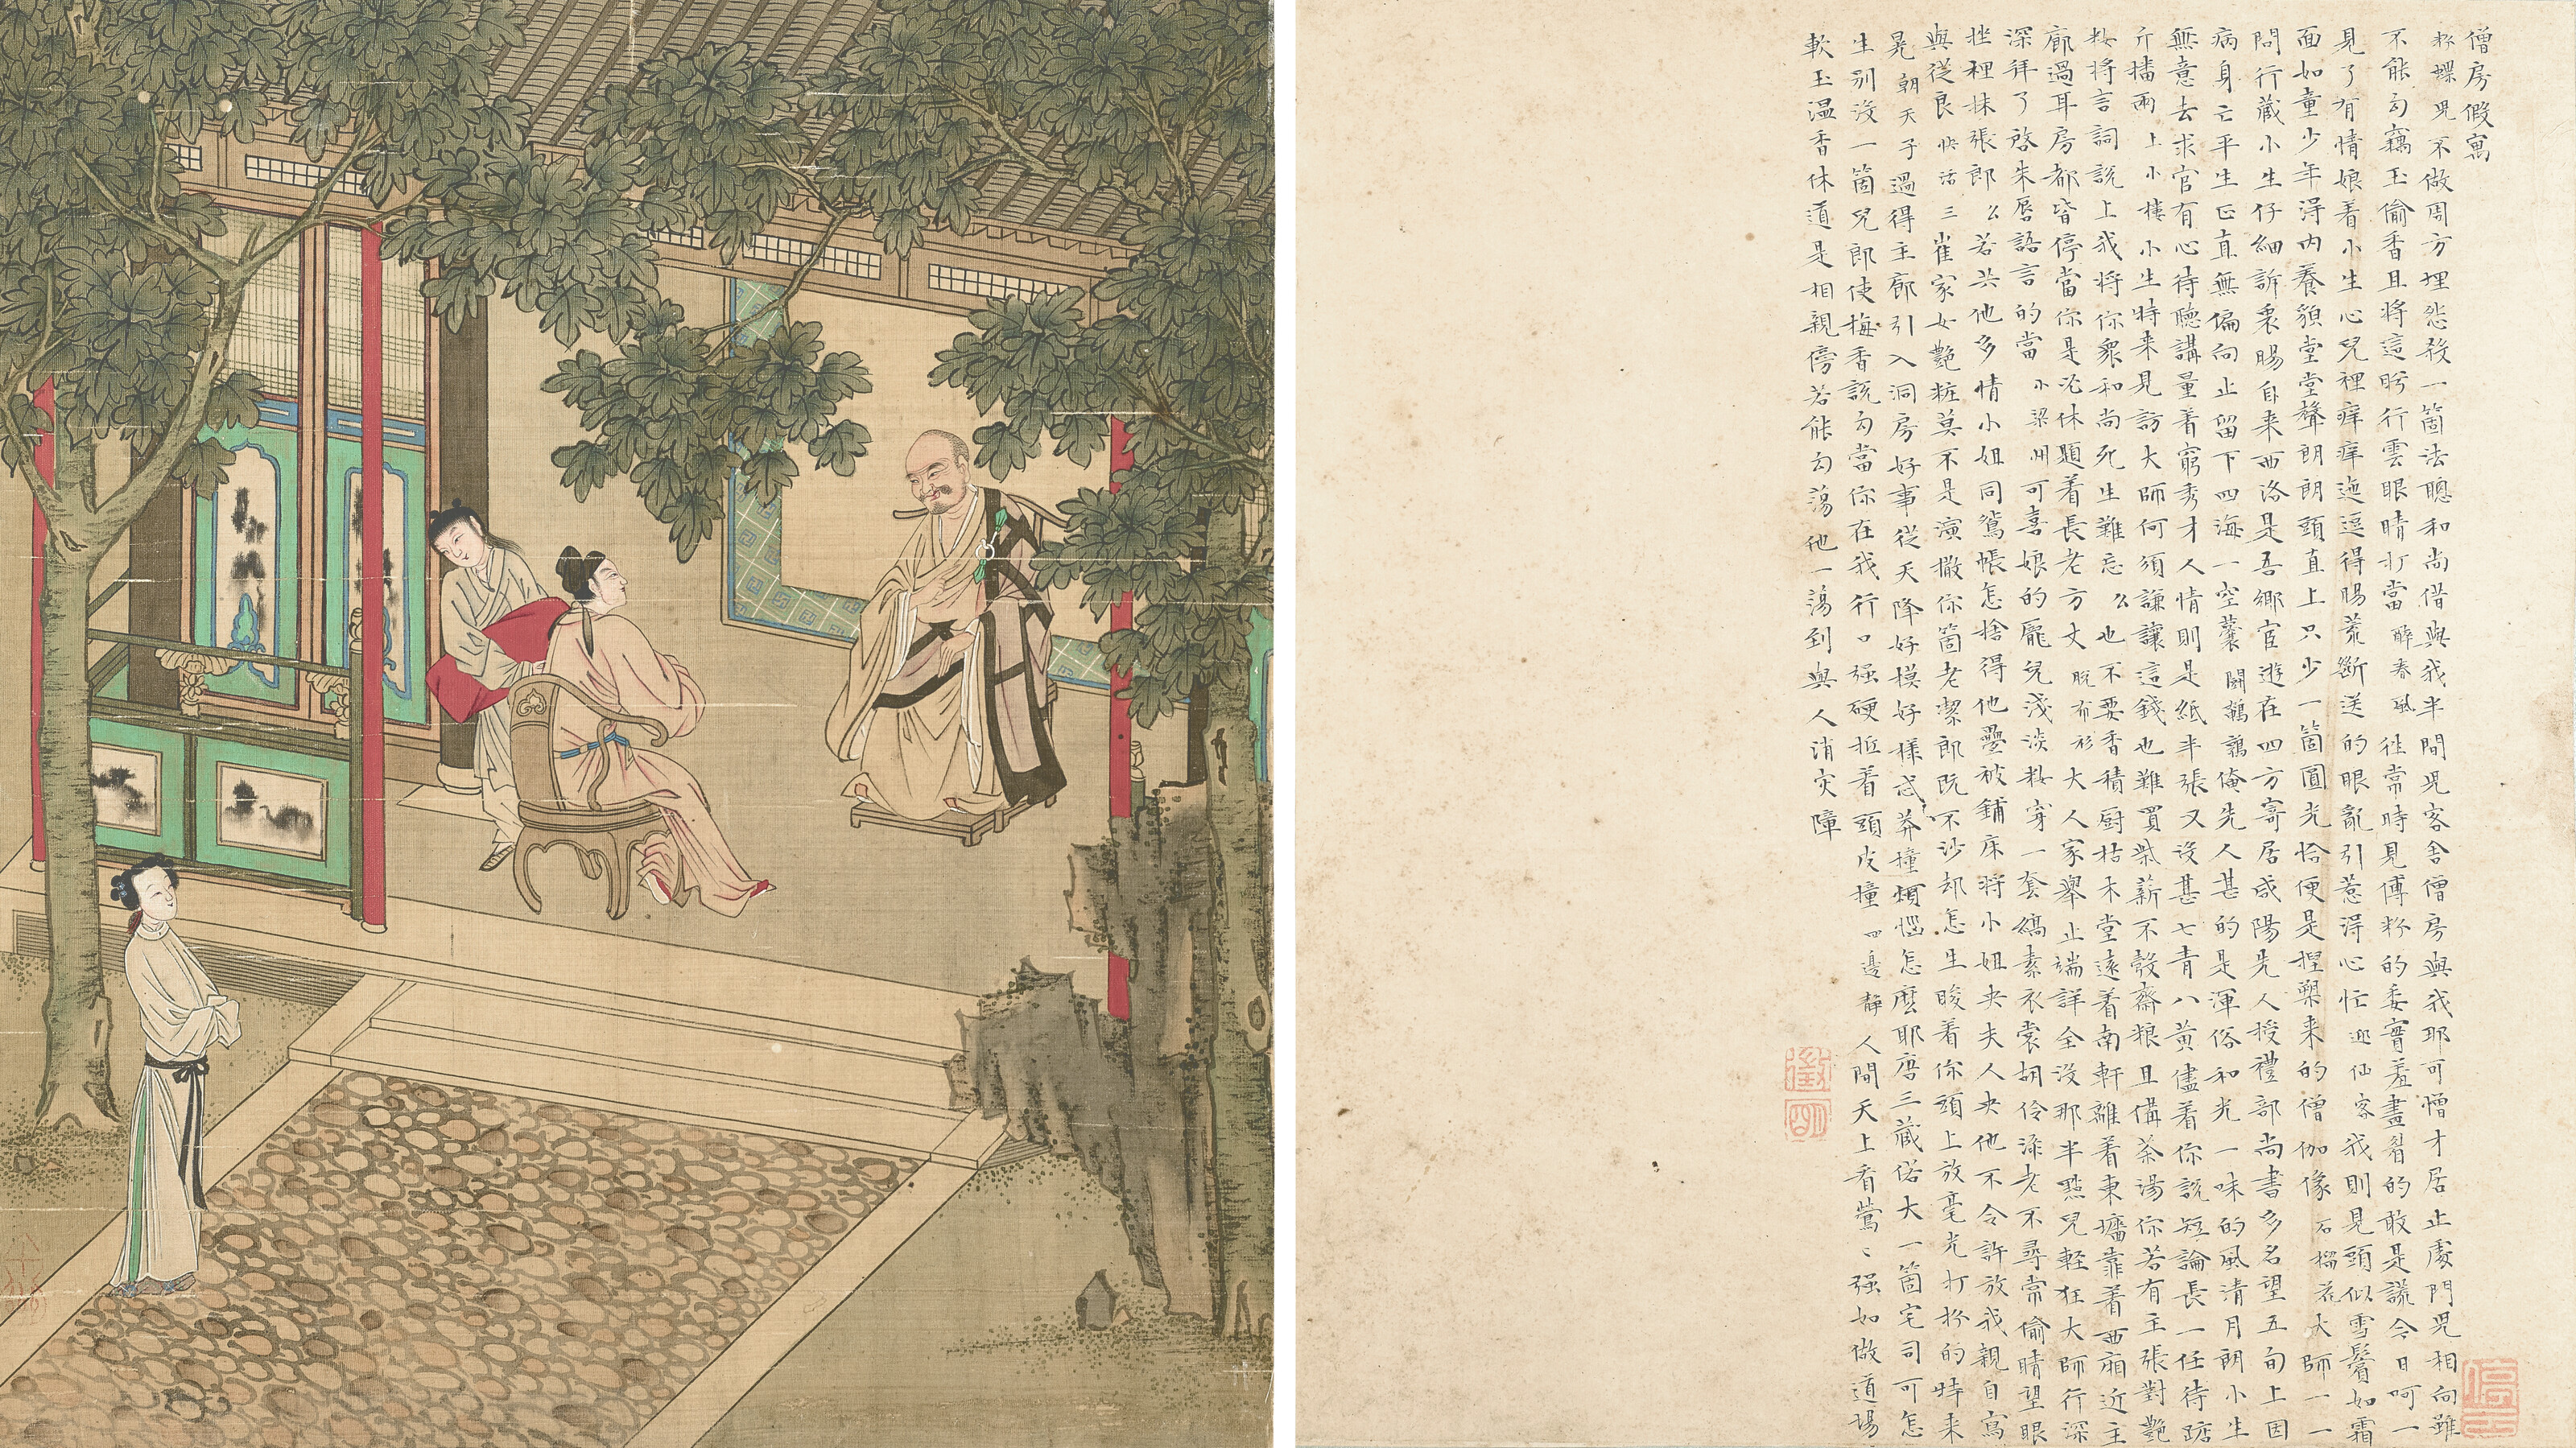 僧房假寓
粉蝶兒不做周方埋怨殺一箇法聰和尚借與我半間兒客舍僧房與我那可憎才居止處門兒相向雖
不能勾竊玉偷香且將這盻行雲眼睛打當醉春風往常時見傅粉的委實羞畫眉的敢是謊今日呵一
見了有情娘着小生心兒裡痒痒迤逗得腸荒斷送的眼亂引惹得心忙迎仙客我則見頭似雪鬢如霜
面如童少年得內養貌堂堂聲朗朗頭直上只少一箇圓光恰便是捏塑来的僧伽像石榴花大師一一
問行藏小生仔細訴衷腸自来西洛是吾鄉宦遊在四方寄居咸陽先人授禮部尚書多名望五旬上因
病身亡平生正直無偏向止留下四海一空囊鬪鵪鶉俺先人甚的是渾俗和光一味的風清月朗小生
無意去求官有心待聽講量着窮秀才人情則是紙半張又沒甚七青八黃儘着你說短論長一任待踮
斤播兩上小樓小生特来見訪大師何須謙讓這錢也難買柴薪不彀齋粮且備茶湯你若有主張對艷
粧將言詞說上我將你衆和尚死生難忘么也不要香積厨枯木堂遠着南軒離着東墻靠着西廂近主
廊過耳房都皆停當你是必休題着長老方丈脫布衫大人家舉止端詳全沒那半點兒輕狂大師行深
深拜了啓朱唇語言的當小梁州可喜娘的龐兒淺淡粧穿一套縞素衣裳胡伶淥老不尋常偷睛望眼
挫裡抹張郎么若共他多情小姐同鴛帳怎捨得他疊被鋪床將小姐央夫人央他不令許放我親自寫
與從良快活三崔家女艷粧莫不是演撒你箇老潔郎既不沙却怎生睃着你頭上放毫光打扮的特来
晃朝天子過得主廊引入洞房好事從天降好模好樣忒莽撞煩惱怎麽耶唐三藏偌大一箇宅司可怎
生別沒一箇兒郎使梅香說勾當你在我行口强硬抵着頭皮撞四邊靜人間天上看鶯〻强如做道場
軟玉温香休道是相親傍若能勾蕩他一蕩到與人消灾障
徵明
停雲